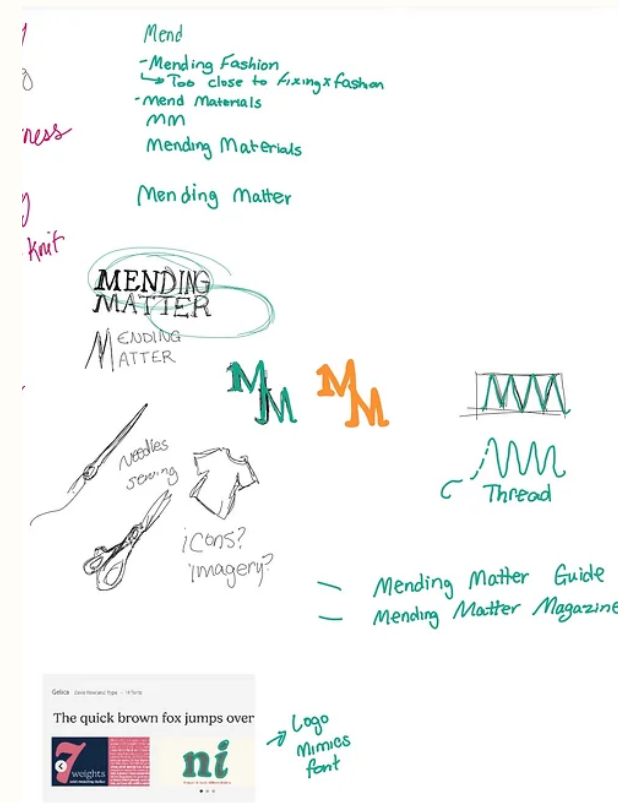 Mend
-Mending Fashion
↳ Too close to fixing x fashion
-Mend Materials
MM
ness
Mending Materials
Mending Matter
Knit
MENDING
MATTER
MENDING
MATTER
MM
MM
MM
Needles
sewing
Thread
icons?
imagery?
- Mending Matter Guide
- Mending Matter Magazine
Gelica
The quick brown fox jumps over
7 weights
ni
→ Logo
Mimics
font